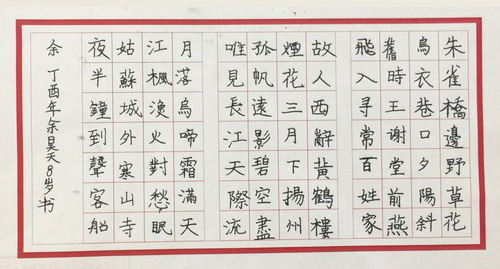 朱雀橋邊野草花
烏衣巷口夕陽斜
舊時王谢堂前燕
飛入寻常百姓家
故人西辭黄鶴樓
煙花三月下揚州
孤帆遠影碧空盡
唯見長江天際流
月落烏啼霜滿天
江楓漁火對愁眠
姑蘇城外寒山寺
夜半鐘到聲客船
余 丁酉年余昊天8岁书